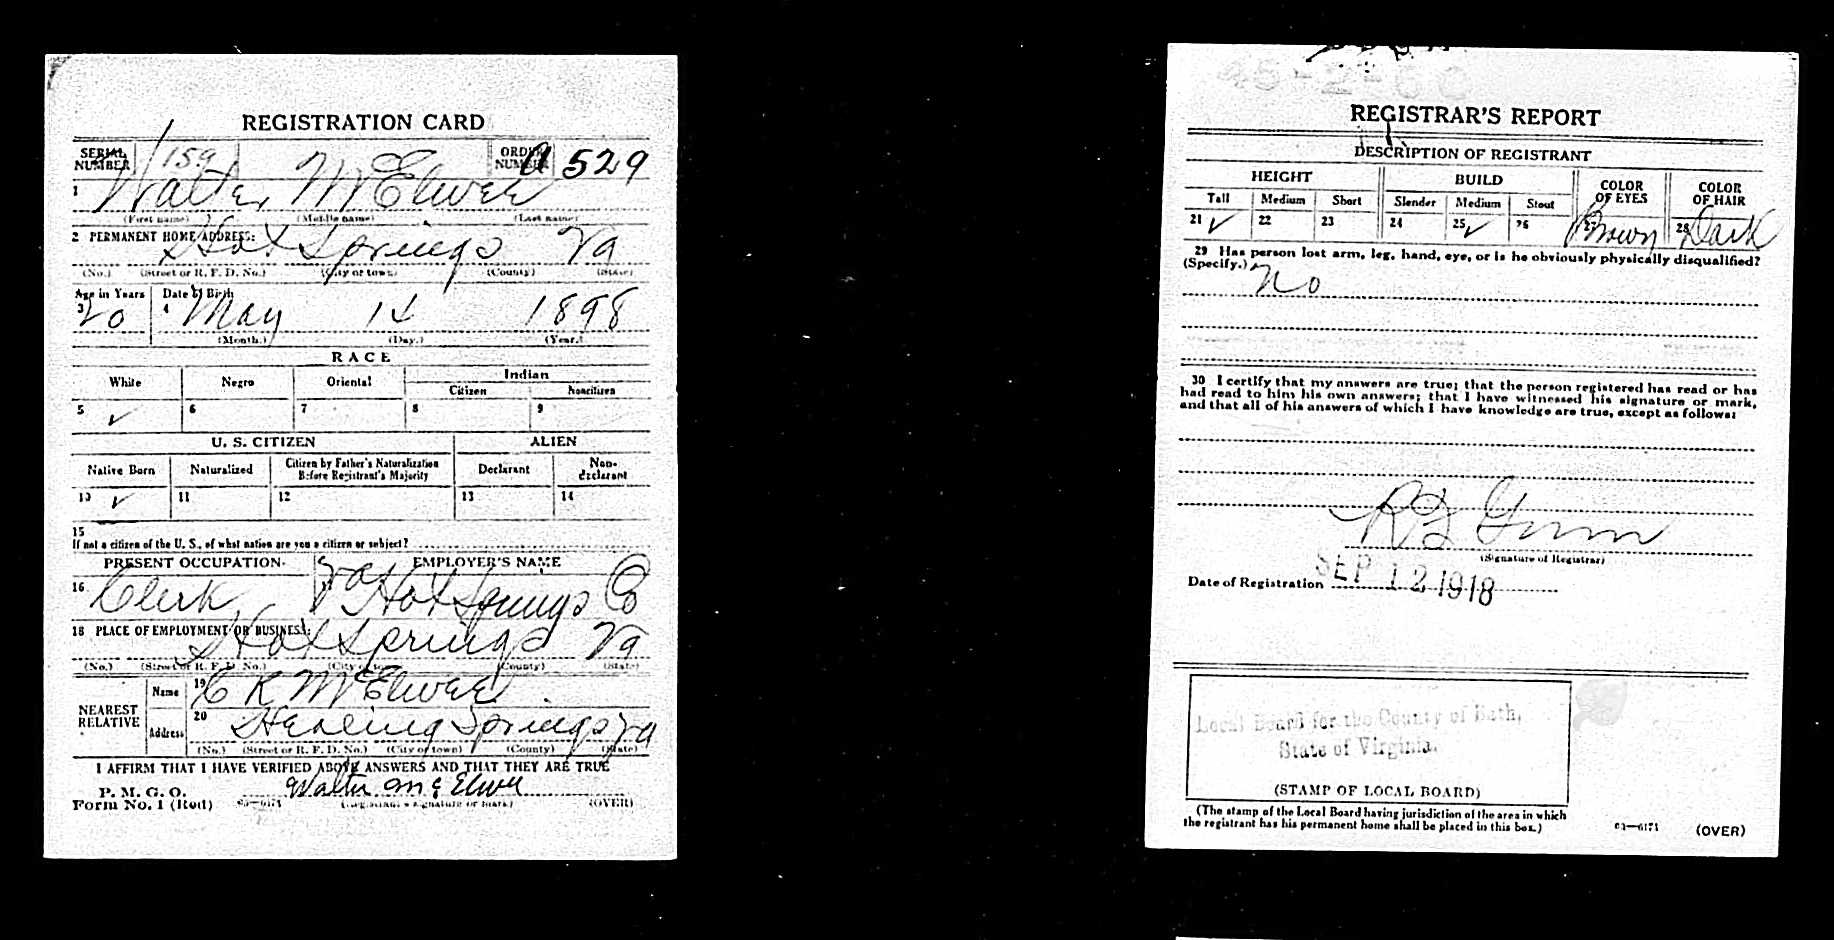 REGISTRATION CARD
SERIAL NUMBER 159 ORDER NUMBER A 529
1 Walter McElwee
(First name) (Middle name) (Last name)
2 PERMANENT HOME ADDRESS: Hot Springs Va
(No.) (Street or R. F. D. No.) (City or town) (County) (State)
Age in Years Date of Birth
3 20 4 May 14 1898
(Month.) (Day.) (Year.)
RACE
White Negro Oriental Indian
Citizen Noncitizen
5 ✓ 6 7 8 9
U. S. CITIZEN ALIEN
Native Born Naturalized Citizen by Father's Naturalization Before Registrant's Majority Declarant Non-declarant
10 ✓ 11 12 13 14
15
If not a citizen of the U. S., of what nation are you a citizen or subject?
PRESENT OCCUPATION EMPLOYER'S NAME
16 Clerk 17 Va Hot Springs Co
18 PLACE OF EMPLOYMENT OR BUSINESS: Hot Springs Va
(No.) (Street or R. F. D. No.) (City or town) (County) (State)
NEAREST RELATIVE
Name 19 C K McElwee
Address 20 Healing Springs Va
(No.) (Street or R. F. D. No.) (City or town) (County) (State)
I AFFIRM THAT I HAVE VERIFIED ABOVE ANSWERS AND THAT THEY ARE TRUE
P. M. G. O.
Form No. 1 (Red) 03—6171 Walter McElwee
(Registrant's signature or mark) (OVER)
45-2-6 C
REGISTRAR'S REPORT
DESCRIPTION OF REGISTRANT
HEIGHT BUILD COLOR OF EYES COLOR OF HAIR
Tall Medium Short Slender Medium Stout
21 ✓ 22 23 24 25 ✓ 26 27 Brown 28 Dark
29 Has person lost arm, leg, hand, eye, or is he obviously physically disqualified?
(Specify.) No
30 I certify that my answers are true; that the person registered has read or has
had read to him his own answers; that I have witnessed his signature or mark,
and that all of his answers of which I have knowledge are true, except as follows:
(Signature of Registrar)
Date of Registration SEP 12 1918
Local Board for the County of Bath,
State of Virginia.
(STAMP OF LOCAL BOARD)
(The stamp of the Local Board having jurisdiction of the area in which
the registrant has his permanent home shall be placed in this box.)
03—6171 (OVER)